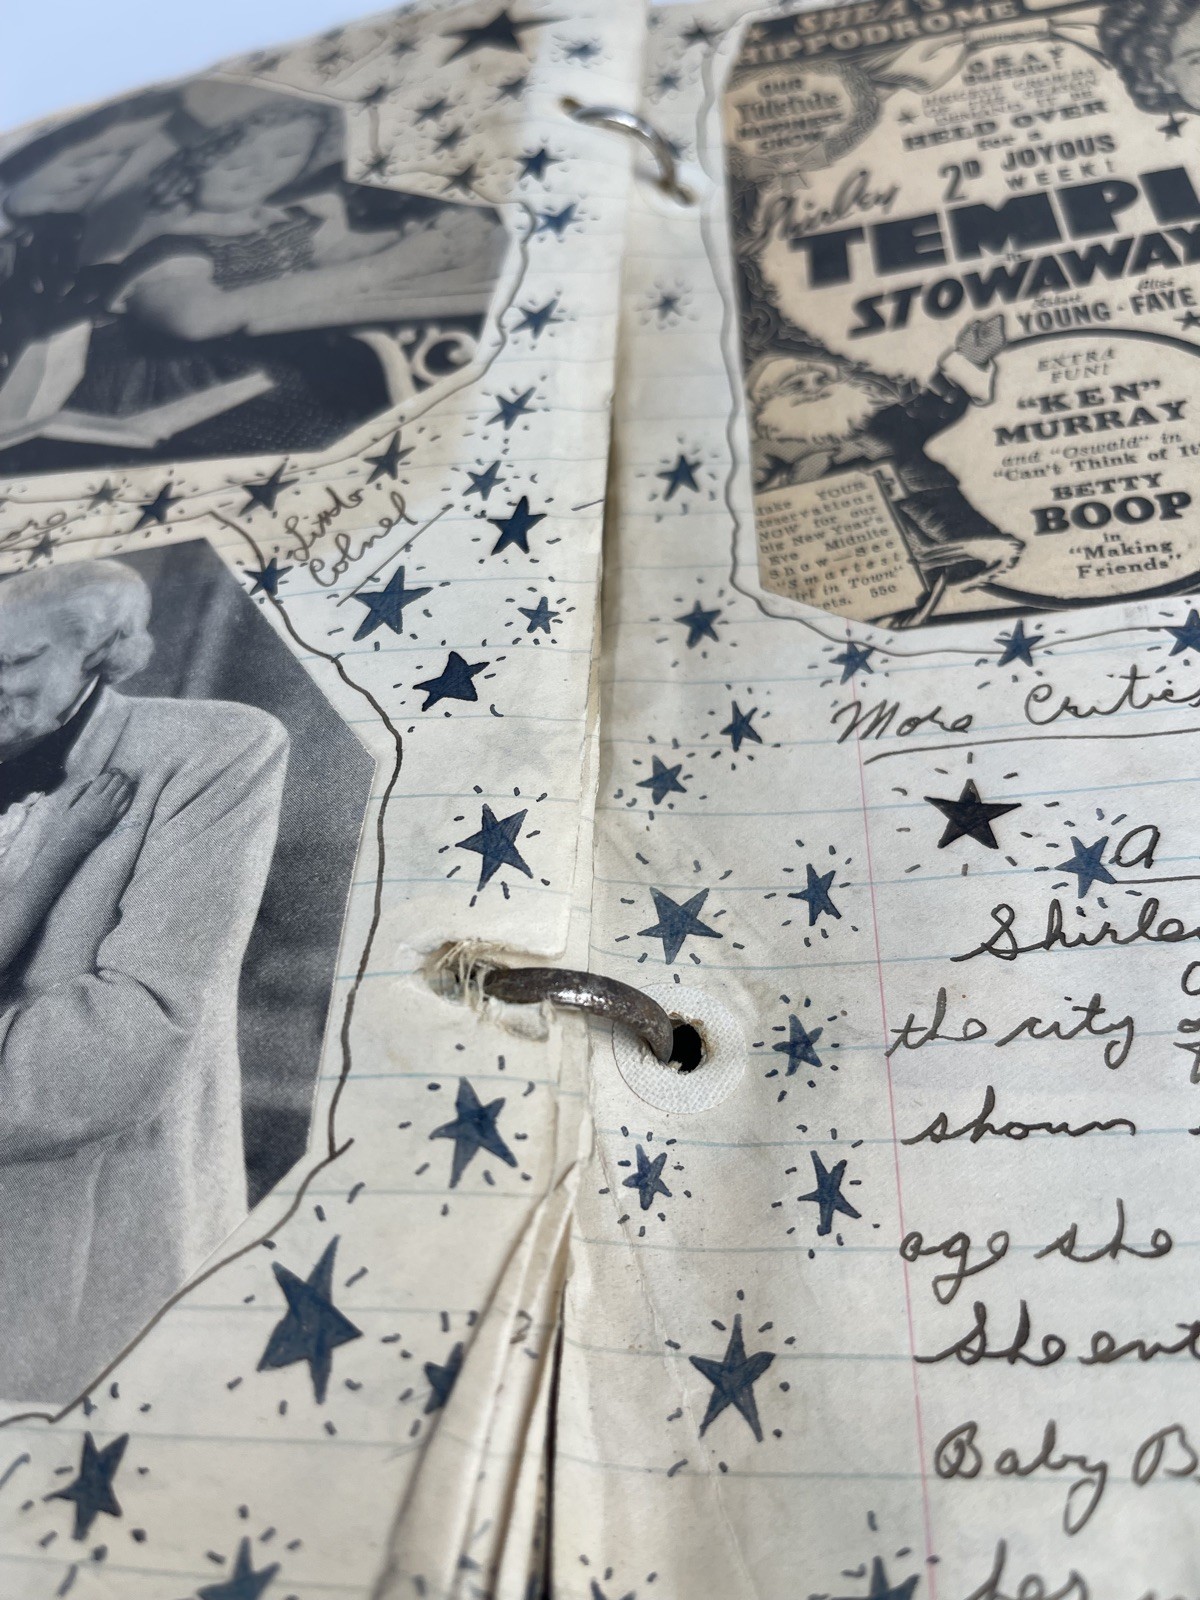 ore
Little
Colnel
SHEA'S
HIPPODROME
OUR
Yuletide
HAPPINESS
SHOW
OKAY
HELD OVER
for a
2D JOYOUS
WEEK!
Shirley
TEMPL
in
STOWAWAY
Robert Alice
YOUNG - FAYE
EXTRA
FUN!
"KEN"
MURRAY
and "Oswald" in
"Can't Think of It"
BETTY
BOOP
in
"Making
Friends"
Make YOUR
Reservations
NOW for our
big New Year's
Eve Midnite
Show—See
"Smartest
Girl in Town"
55c
More Critics
A
Shirley
the city
shown
age she
She ent
Baby B
her